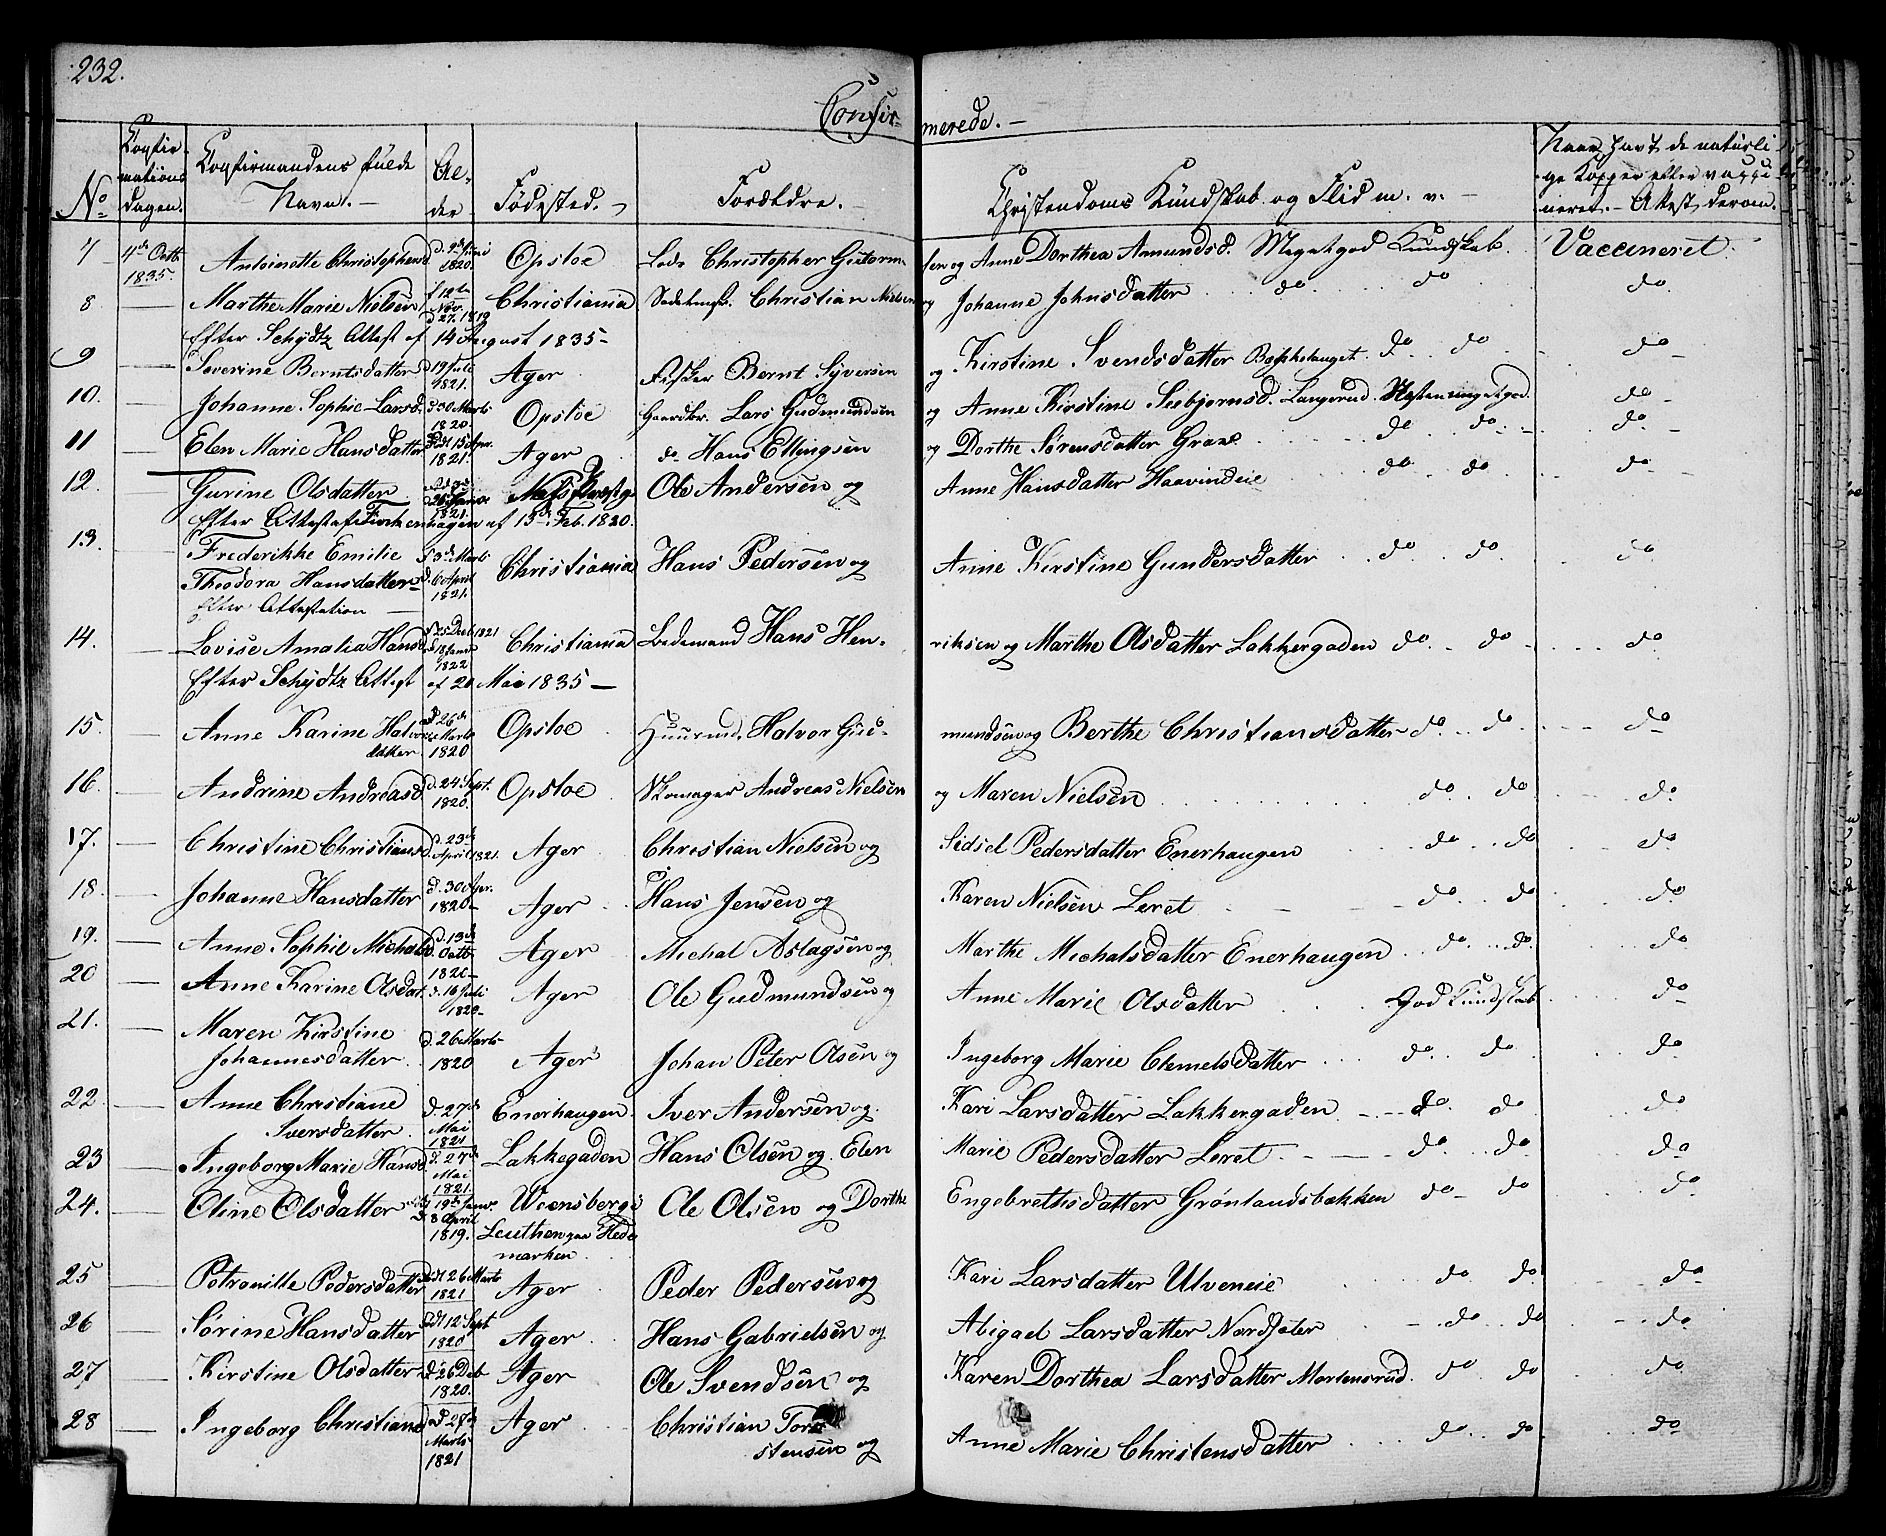 232.
Confirmerede.
No
Confirmations dagen.
Confirmandens fulde Navn.
Alder
Fødested.
Forældre.
Christendoms Kundskab og Flid m. v.
Naar havt de naturlige Kopper eller vaccineret. Attest derom.
7 4de Octb. 1835. Antoinette Christophersd. d. 9de Juni 1820. Opsloe Christopher Gutormsen og Anne Dorthea Amundsd. Meget god Kundskab. Vaccineret.
8 Marthe Marie Nielsen f 12te Nov. d 27. 1819 Christiania Christian Nielsen og Johanne Johnsdatter do. do do.
Efter Schydtz Attest af 14 August 1835 -
9 Severine Berntsdatter d 19 Juli 1821. Ager Fisker Bernt Syversen og Kirstine Svendsdatter do do do
10. Johanne Sophie Larsd. d 30 Marts 1820. Opsloe Gaardbr. Lars Gudmundsen og Anne Kirstine Langerud. do
11 Elen Marie Hansdatter 1821. Ager do Hans Ellingsen og Dorthe Sørensdatter do do do
12 Gurine Olsdatter 1821. Ole Andersen og Anne Hansdatter Haavindeie do do do
Efter Attest af 13de Feb. 1820.
13. Frederikke Emilie Theodora Hansdatter f 3de Marts d. 6 April 1821. Christiania Hans Pedersen og Anne Kirstine Gundersdatter do do do
Efter Attestation
14. Lovise Amalia Hansd. f 25 Decb 1821 d 18 Janv 1822 Christiania Bedemand Hans Henriksen og Marthe Olsdatter Lakkergaden do do do
Efter Schydtz Attest af 20 Mai 1835 -
15. Anne Karine Halvorsdatter d 26de Marts 1820 Opsloe Halvor Gudmundsen og Berthe Christiansdatter do. do do
16. Andrine Andreasd d. 24 Sept. 1820. Opsloe Skomager Andreas Nielsen og Maren Nielsen do. do do.
17. Christine Christians d. 23de April 1821. Ager Christian Nielsen og Sidsel Pedersdatter Enerhaugen do do do
18. Johanne Hansdatter d. 30 Apr. 1820 - Ager Hans Jensen og Karen Nielsen Leret do do do.
19. Anne Sophie Michalsd. d. 13de Octb 1820 - Ager Michal Aslagsen og Marthe Michalsdatter Enerhaugen do. do. do
20 Anne Karine Olsdat. d. 16 Juli 1820 - Ager Ole Gudmundsen og Anne Marie Olsdatter God Kundskab do
21. Maren Kirstine Johannesdatter d. 26 Marts 1820 Ager Johan Peter Olsen og Ingeborg Marie Clemetsdatter do do do
22. Anne Christiane Iversdatter d. 27de Mai 1821 Enerhaugen. Iver Andersen og Kari Larsdatter Lakkergaden do. do do
23 Ingeborg Marie Hansd. d. 27de Mai 1821. Lakkegaden Hans Olsen og Elen Marie Pedersdatter Leret. do do do
24. Oline Olsdatter 19de Janv. d 8 April 1819. Leuthen paa Hedemarken Ole Olsen og Dorthe Engebrethsdatter Grønlandsbakken do do do
25 Petronille Pedersdatter d 26 Marts 1821 Ager Peder Pedersen og Kari Larsdatter Ulveneie do. do do
26 Sørine Hansdatter d 12 Sept 1820 Ager Hans Gabrielsen og Abigael Larsdatter Nordseter do do do
27 Kirstine Olsdatter d. 26 Deb 1820. Ager Ole Svendsen og Karen Dorthea Larsdatter Mortensrud. do do do
28 Ingeborg Christiansd d 27de Marts 1821 Ager Christian Torstensen og Anne Marie Christensdatter do do do